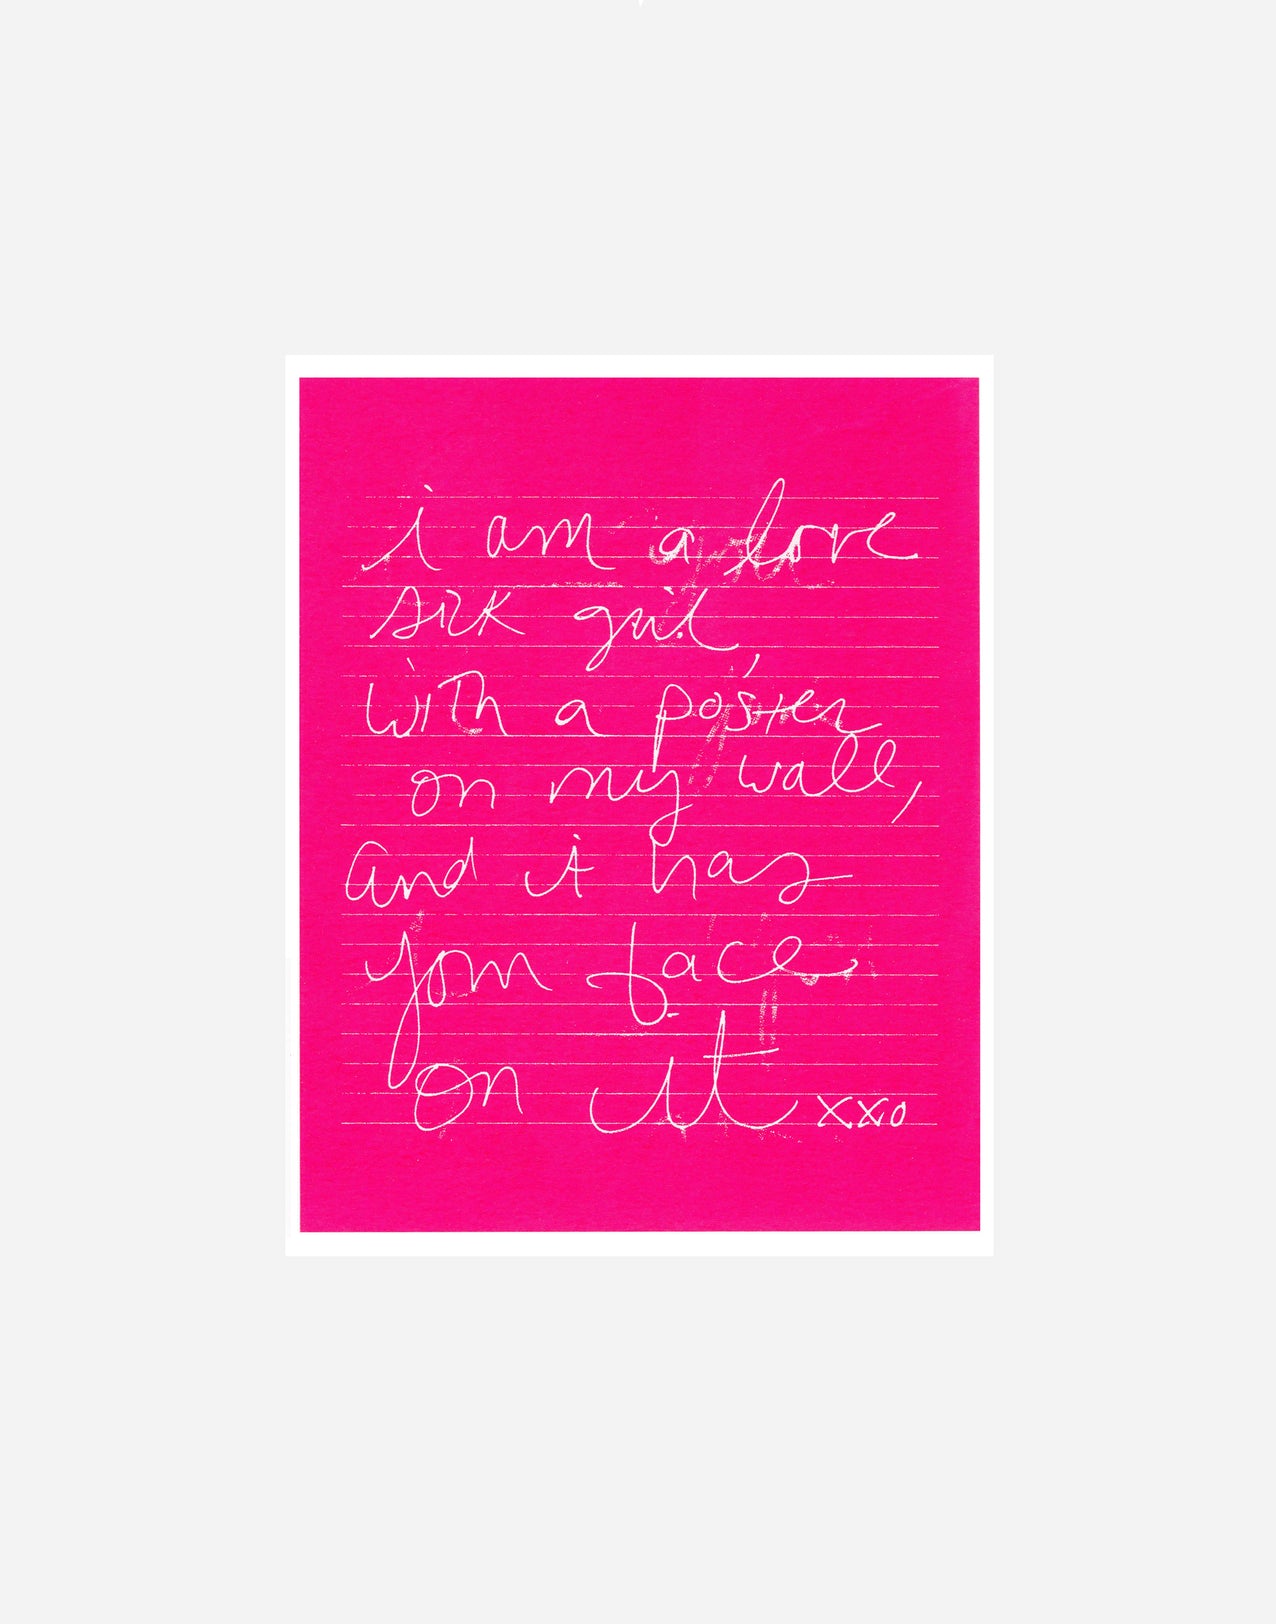 i am a love
sick girl,
with a poster
on my wall,
and it has
your face
on it xxo